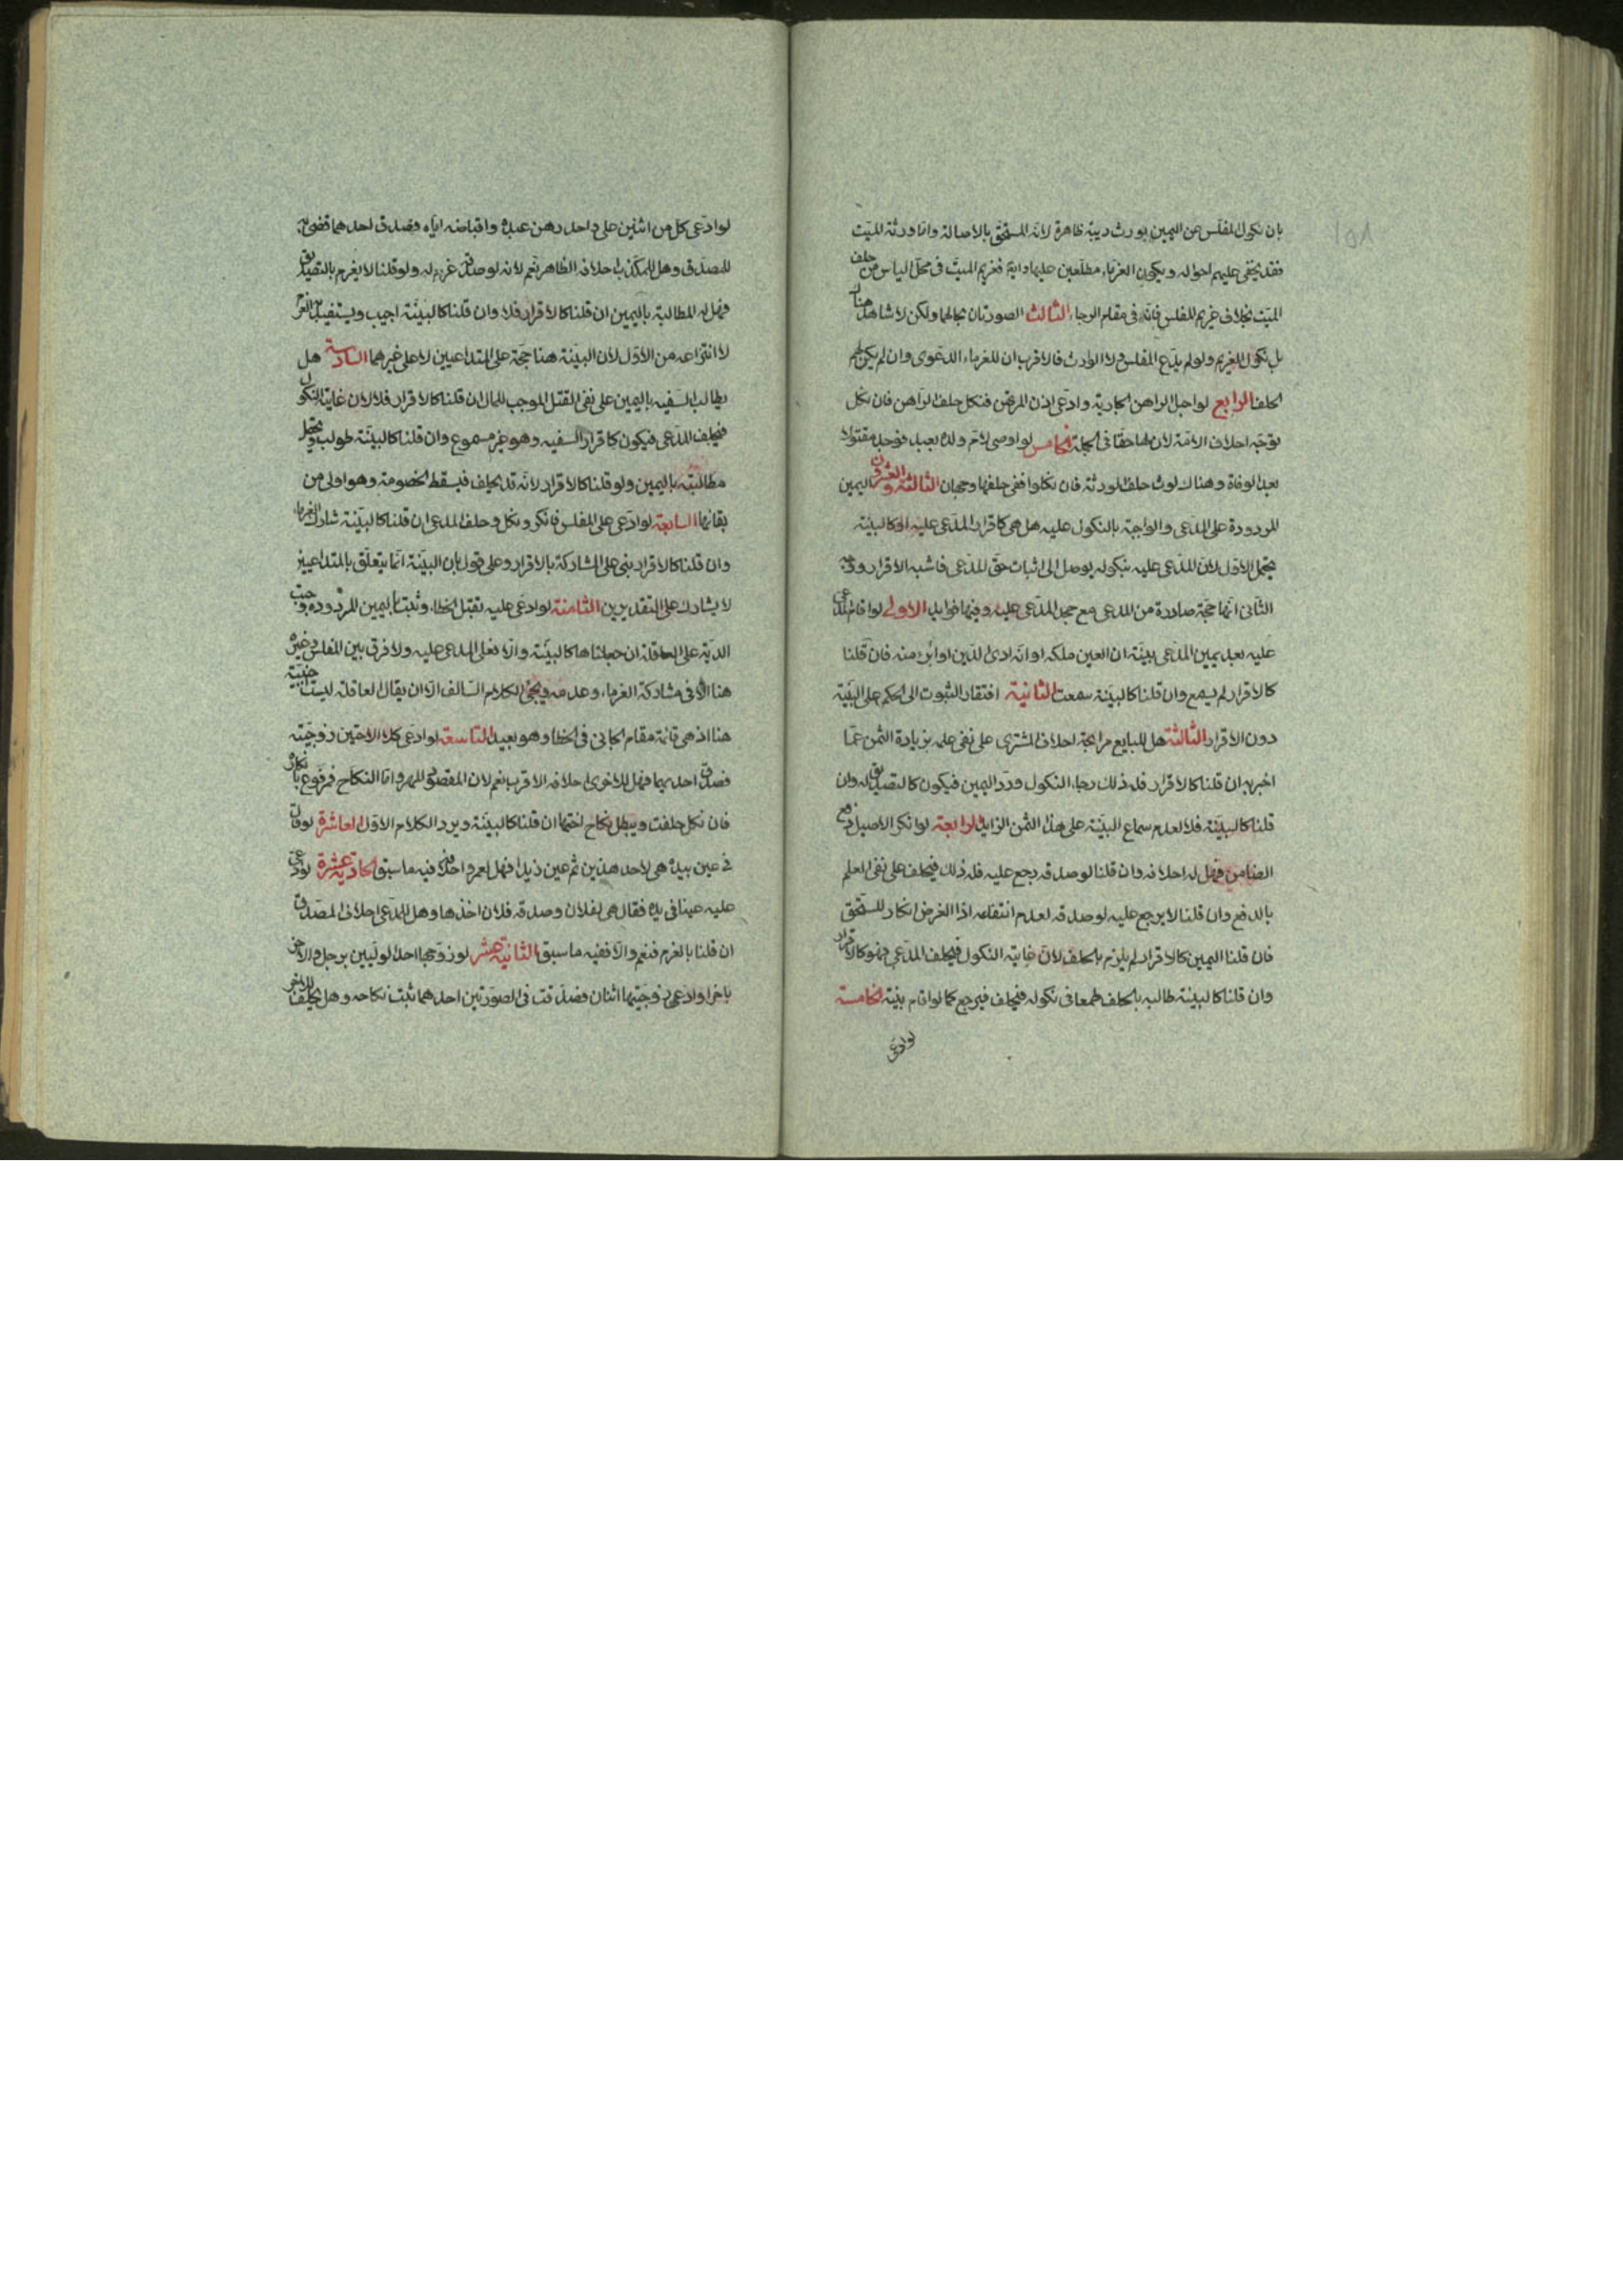 ١٥٨
بان نكول المفلس عن اليمين يورث ريبة ظاهرة لانه المستحق بالاصالة واما ورثة الميت
فقد يخفى عليهم احواله ويكون الغرماء مطلعين عليها وايضا فغريم الميت في محل الياس من حلف
الميت بخلاف غريم المفلس فانه في مقام الرجاء الثالث الصورتان بحالهما ولكن لا شاهد هنا
بل نكول الغريم ولو لم يدع المفلس ولا الوارث فالاقرب ان للغرماء الدعوى وان لم يكن لهم
الحلف الرابع لو احبل الراهن الجارية وادعى اذن المرتهن فنكل حلف الراهن فان نكل
توجه احلاف الامة لان لها حقا في الجملة الخامس لو اوصى لام ولده بعبد فوجد مقتولا
بعد الوفاة وهناك لوث حلف الورثة فان نكلوا ففي حلفها وجهان الثالثة والعشرون اليمين
المردودة على المدعى والواجبة بالنكول عليه هل هي كاقرار المدعى عليه او كالبينة
يحتمل الاول لان المدعى عليه بنكوله يوصل الى اثبات حق المدعى فاشبه الاقرار ووجه
الثاني انها حجة صادرة من المدعى مع جحد المدعى عليه وفيها فوايد الاولى لو اقام المدعى
عليه بعد يمين المدعى بينة ان العين ملكه او انه ادى الدين او ابرئ منه فان قلنا
كالاقرار لم يسمع وان قلنا كالبينة سمعت الثانية افتقار الثبوت الى الحكم على البينة
دون الاقرار الثالثة هل للبايع مرابحة احلاف المشترى على نفى علمه بزيادة الثمن عما
اخبر به ان قلنا كالاقرار فله ذلك رجاء النكول ورد اليمين فيكون كالتصديق له وان
قلنا كالبينة فلا لعدم سماع البينة على هذا الثمن الزايد الرابعة لو انكر الاصيل دفع
الضامن فهل له احلافه وان قلنا لو صدقه رجع عليه فله ذلك فيحلف على نفى العلم
بالدفع وان قلنا لا يرجع عليه لو صدقه لعدم انتفاعه اذا الغرض انكار المستحق
فان قلنا اليمين كالاقرار لم يلزم بالحلف لان غاية النكول فيحلف المدعى وهو كالاقرار
وان قلنا كالبينة طالبه بالحلف طمعا في نكوله فيحلف فيرجع كما لو اقام بينة الخامسة
لو ادعى
لو ادعى كل من اثنين على واحد رهن عبده واقباضه اياه فصدق احدهما قضى به
للمصدق وهل للمكذب احلافه الظاهر نعم لانه لو صدقه غرم له ولو قلنا لا يغرم بالتصديق
فهل له المطالبة باليمين ان قلنا كالاقرار فلا وان قلنا كالبينة اجيب ويستفيد به الغرم
لا انتزاعه من الاول لان البينة هنا حجة على المتداعيين لا على غيرهما السادسة هل
يطالب السفيه باليمين على نفى القتل الموجب للمال ان قلنا كالاقرار فلا لان غاية النكول
فيحلف المدعى فيكون كاقرار السفيه وهو غير مسموع وان قلنا كالبينة طولب ويحتمل
مطالبته باليمين ولو قلنا كالاقرار لانه قد يحلف فيسقط الخصومة وهو اولى من
بقائها السابعة لو ادعى على المفلس فانكر ونكل وحلف المدعى ان قلنا كالبينة شارك الغرماء
وان قلنا كالاقرار بنى على المشاركة بالاقرار وعلى قول بان البينة انما يتعلق بالمتداعيين
لا يشارك على التقديرين الثامنة لو ادعى عليه بقتل الخطاء وثبت باليمين المردودة وجبت
الدية على العاقلة ان جعلناها كالبينة والا فعلى المدعى عليه ولا فرق بين المفلس وغيره
هنا الا في مشاركة الغرماء وعدمه ويجئ الكلام السالف الا ان يقال العاقلة ليست اجنبية
هنا اذ هي قائمة مقام الجاني في الخطا وهو بعيد التاسعة لو ادعى كلا الاختين زوجيته
فصدق احديهما فهل للاخرى احلافه الاقرب نعم لان المقصود المهر واما النكاح فمرفوع بانكاره
فان نكل حلفت ويبطل نكاح اختها ان قلنا كالبينة ويرد الكلام الاول العاشرة لو قال
في عين بيده هي لاحد هذين ثم عين زيدا فهل لعمرو احلافه فيه ما سبق الحادية عشرة لو ادعى
عليه عينا في يده فقال هي لفلان وصدقه فلان اخذها وهل للمدعى احلاف المصدق
ان قلنا بالغرم فنعم والا ففيه ما سبق الثانية عشر لو زوجها احد الوليين برجل والاخر
باخر او ادعى زوجيتها اثنان فصدقت في الصورتين احدهما ثبت نكاحه وهل يحلف للاخر